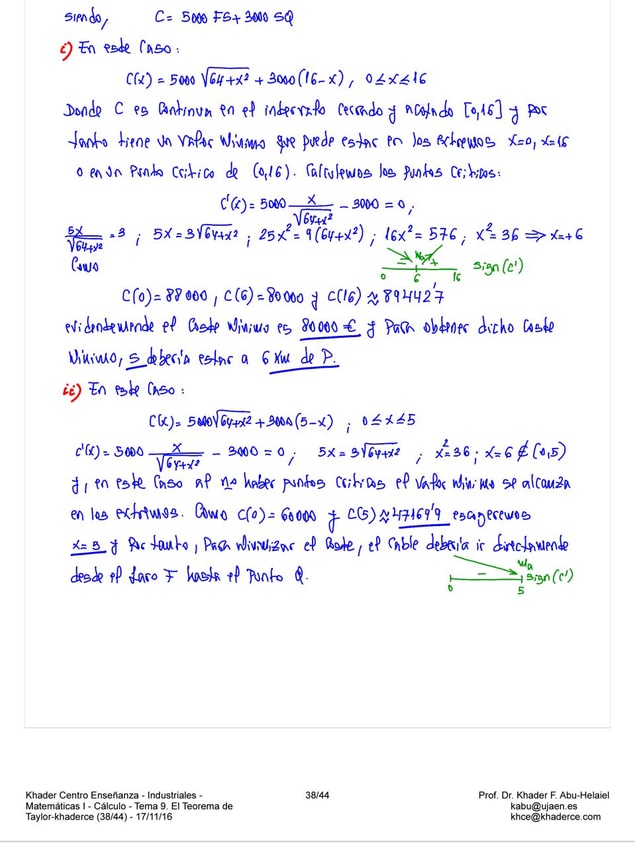 siendo, C = 5000 FS + 3000 SQ
i) En este Caso:
C(x) = 5000 √64+x² + 3000 (16-x), 0 ≤ x ≤ 16
Donde C es Continua en el intervalo cerrado y acotado [0,16] y por
tanto tiene un valor Mínimo que puede estar en los extremos x=0, x=16
o en un Punto Crítico de (0,16). Calculemos los puntos Críticos:
C'(x) = 5000 x/√64+x² - 3000 = 0;
5x/√64+x² = 3 ; 5x = 3√64+x² ; 25x² = 9(64+x²) ; 16x² = 576 ; x² = 36 ⇒ x = +6
Como
- + Ma
0 6 16 sign(C')
C(0) = 88000, C(6) = 80000 y C(16) ≈ 89442'7
evidentemente el Coste Mínimo es 80000 € y Para obtener dicho Coste
Mínimo, S debería estar a 6 Km de P.
ii) En este Caso:
C(x) = 5000√64+x² + 3000(5-x) ; 0 ≤ x ≤ 5
C'(x) = 5000 x/√64+x² - 3000 = 0; 5x = 3√64+x² ; x² = 36 ; x = 6 ∉ (0,5)
y, en este Caso al no haber puntos Críticos el valor Mínimo se alcanza
en los extremos. Como C(0) = 60000 y C(5) ≈ 47169'9 escogeremos
x = 5 y Por tanto, Para Minimizar el Coste, el Cable debería ir directamente
desde el faro F hasta el Punto Q.
- Ma
0 5 sign(C')
Khader Centro Enseñanza - Industriales -
Matemáticas I - Cálculo - Tema 9. El Teorema de
Taylor-khaderce (38/44) - 17/11/16
38/44
Prof. Dr. Khader F. Abu-Helaiel
kabu@ujaen.es
khce@khaderce.com